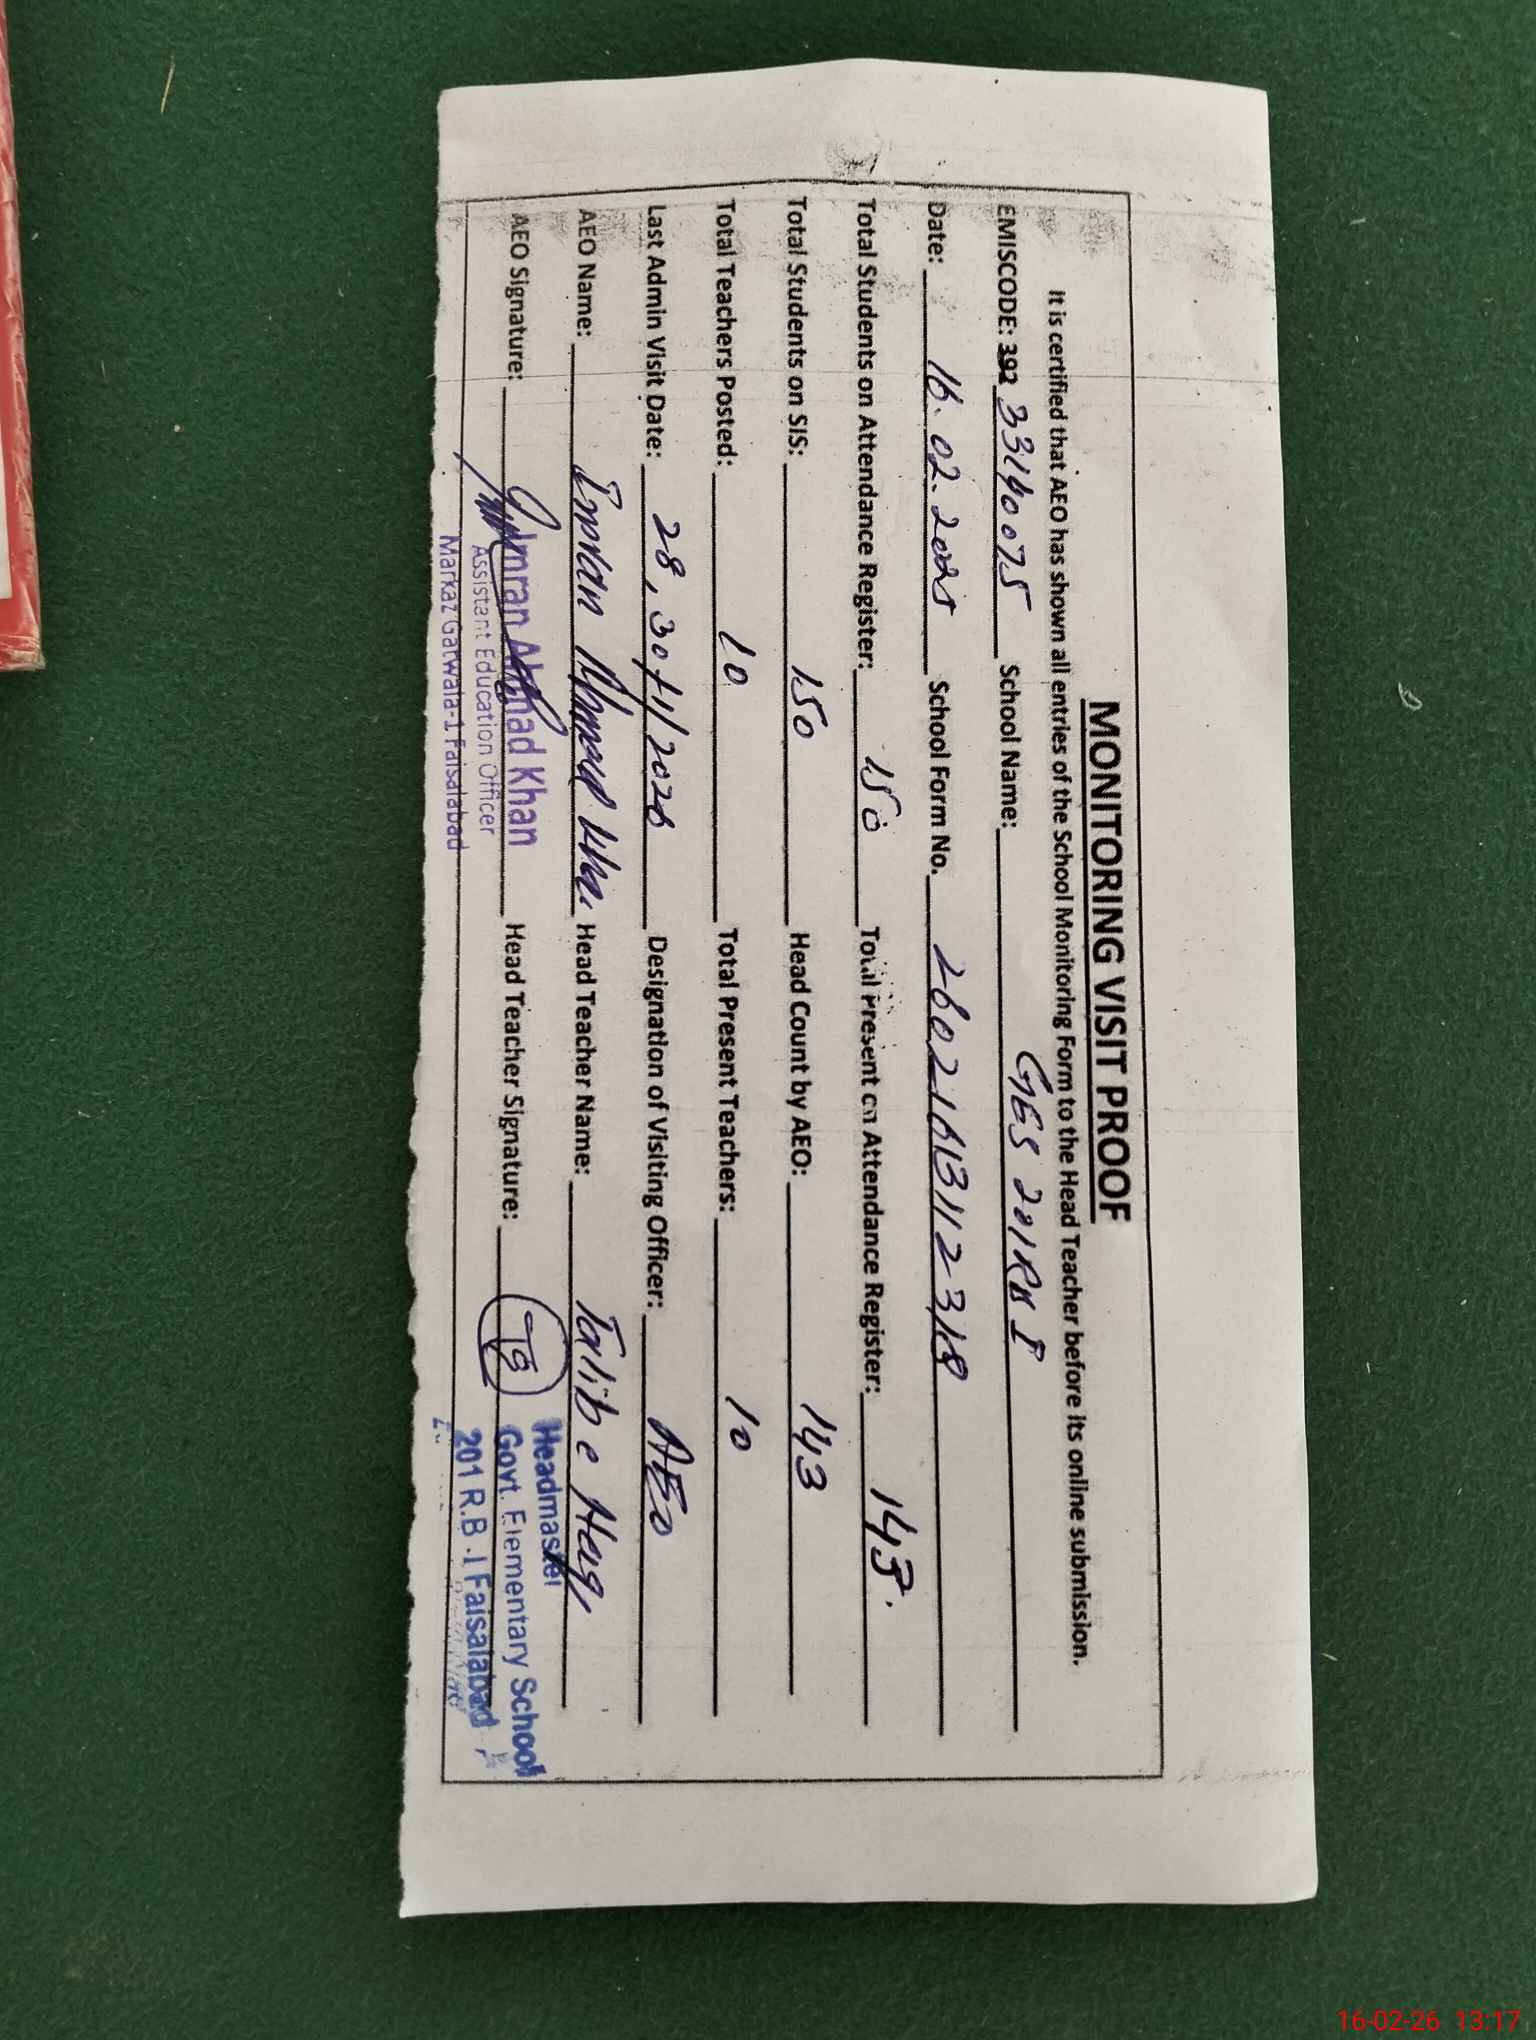 MONITORING VISIT PROOF
It is certified that AEO has shown all entries of the School Monitoring Form to the Head Teacher before its online submission.
EMISCODE: 392 33140075 School Name: GES 201RB I
Date: 16.02.2025 School Form No.
Total Students on Attendance Register: 150 Total Present on Attendance Register: 143.
Total Students on SIS: 150 Head Count by AEO: 143
Total Teachers Posted: 10 Total Present Teachers: 10
Last Admin Visit Date: 28, 30/1/2026 Designation of Visiting Officer: AEO
AEO Name: Imran Ahmad Khan Head Teacher Name: Talib e Haq
AEO Signature: Head Teacher Signature:
Imran Ahmad Khan
Assistant Education Officer
Markaz Gatwala-1 Faisalabad
Headmaster
Govt. Elementary School
201 R.B.I Faisalabad
16-02-26 13:17